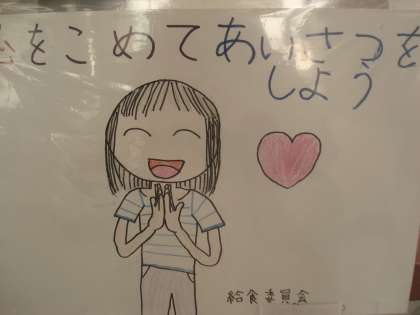 心をこめてあいさつを
しよう
給食委員会